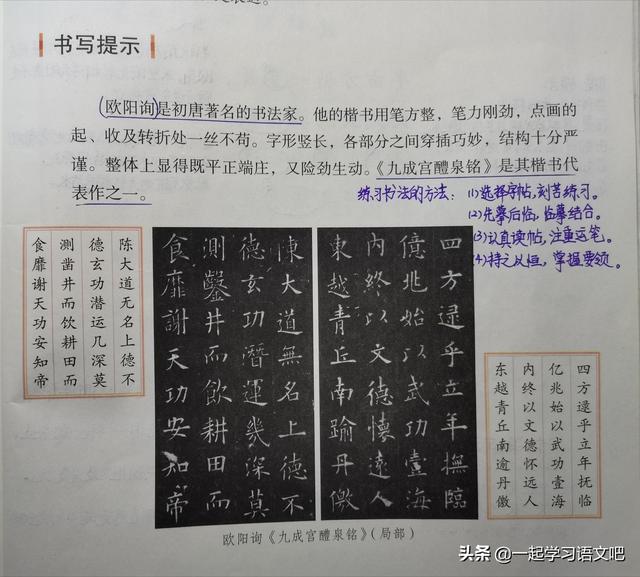 书写提示
欧阳询是初唐著名的书法家。他的楷书用笔方整，笔力刚劲，点画的
起、收及转折处一丝不苟。字形竖长，各部分之间穿插巧妙，结构十分严
谨。整体上显得既平正端庄，又险劲生动。《九成宫醴泉铭》是其楷书代
表作之一。
练习书法的方法：(1)选择字帖，刻苦练习。
(2)先摹后临，临摹结合。
(3)认真读帖，注重运笔。
(4)持之以恒，掌握要领。
四方逯乎立年撫臨
億兆始以武功壹海
內終以文德懷遠人
東越青丘南踰丹儌
陳大道無名上德不
德玄功潛運幾深莫
測鑿井而飲耕田而
食靡謝天功安知帝
四方逯乎立年抚临
亿兆始以武功壹海
内终以文德怀远人
东越青丘南逾丹儌
陈大道无名上德不
德玄功潜运几深莫
测凿井而饮耕田而
食靡谢天功安知帝
欧阳询《九成宫醴泉铭》（局部）
头条 @一起学习语文吧